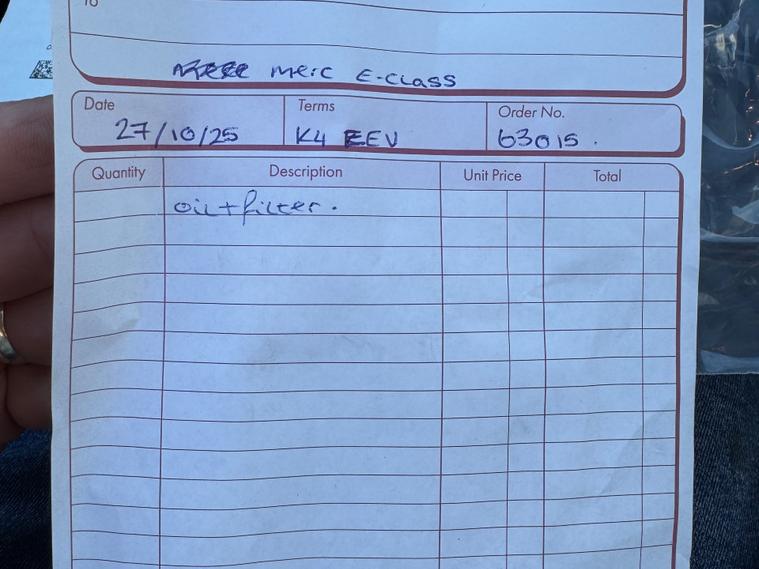 To
Merc E-Class
Date
27/10/25
Terms
K4 EEV
Order No.
63015.
Quantity
Description
Unit Price
Total
oil+filter.